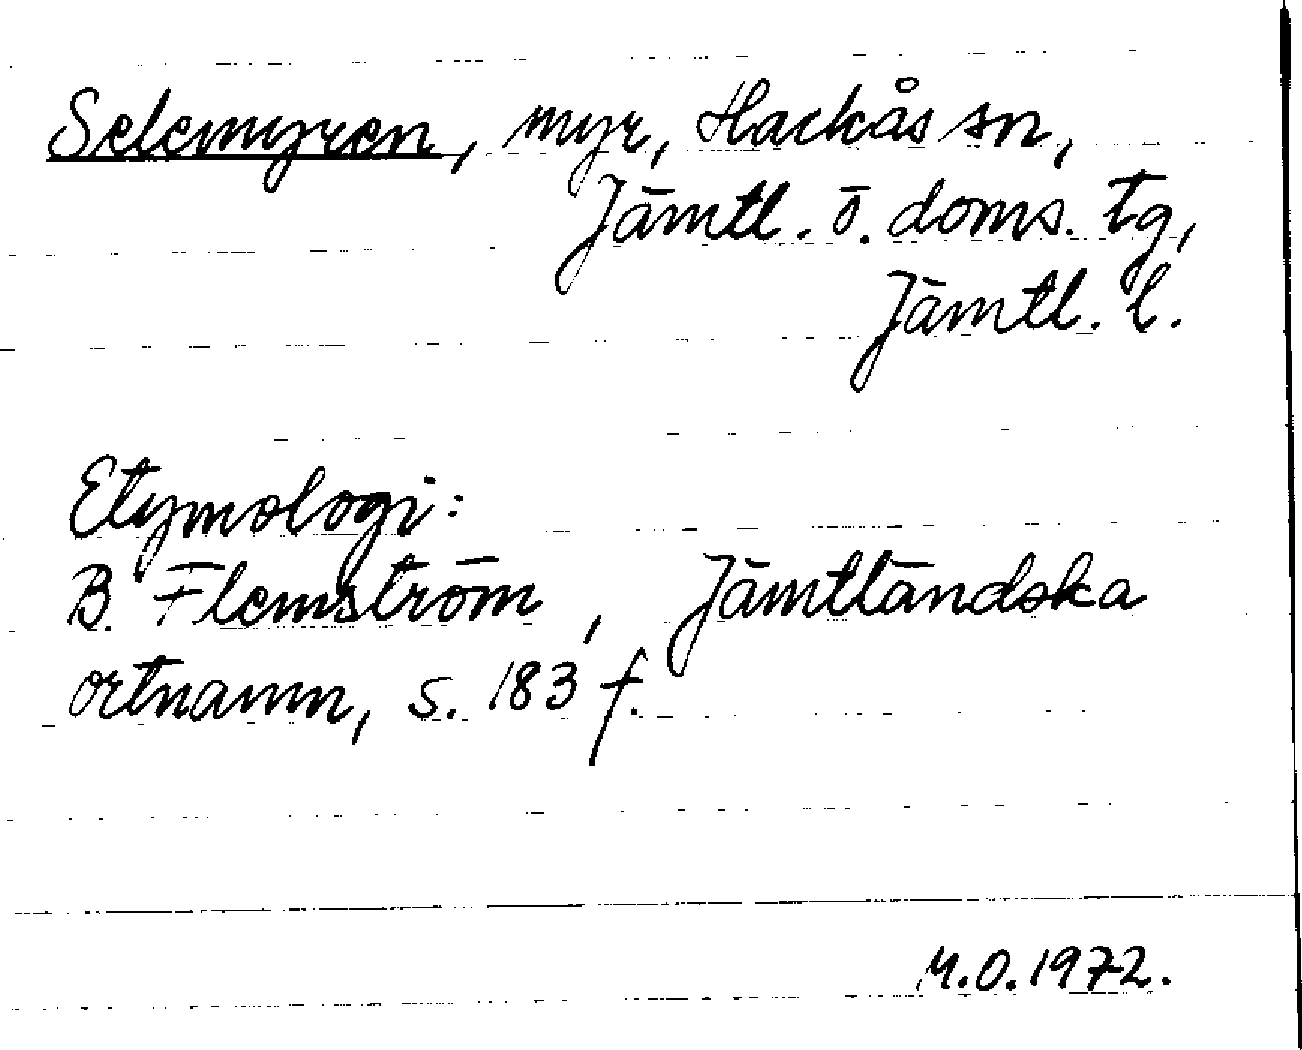 Selemyren, myr, Hackås sn,
Jämtl. ö. doms. tg,
Jämtl. l.
Etymologi:
B. Flemström, Jämtländska
ortnamn, s. 183 f.
M.O.1972.